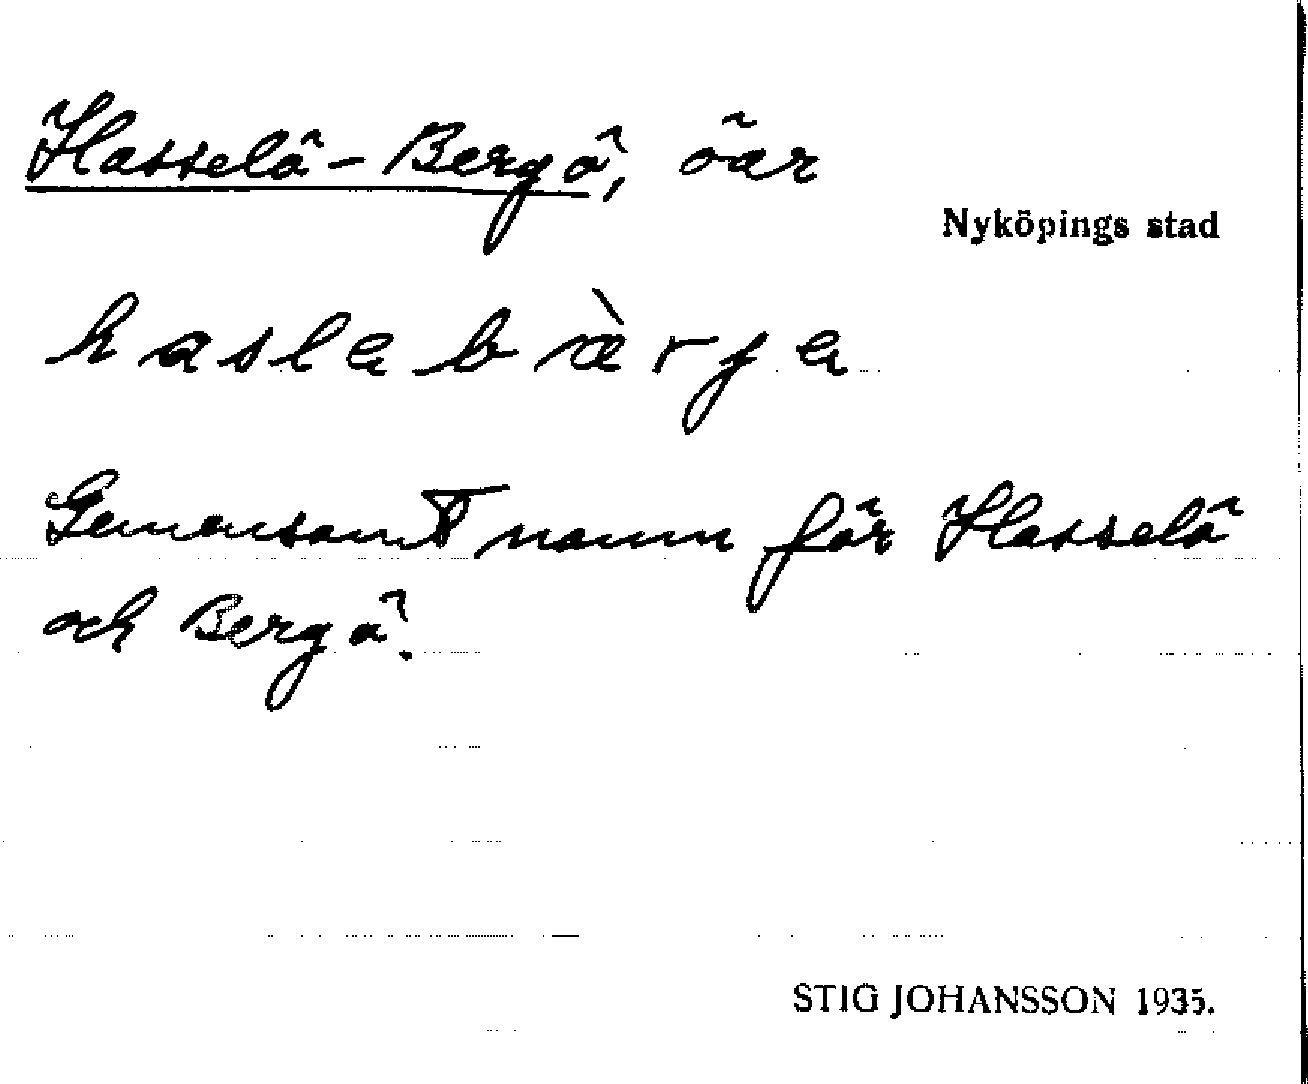 Hasselö-Bergö, öar
Nyköpings stad
haslabàrja
Gemensamt namn för Hasselö
och Bergö.
STIG JOHANSSON 1935.